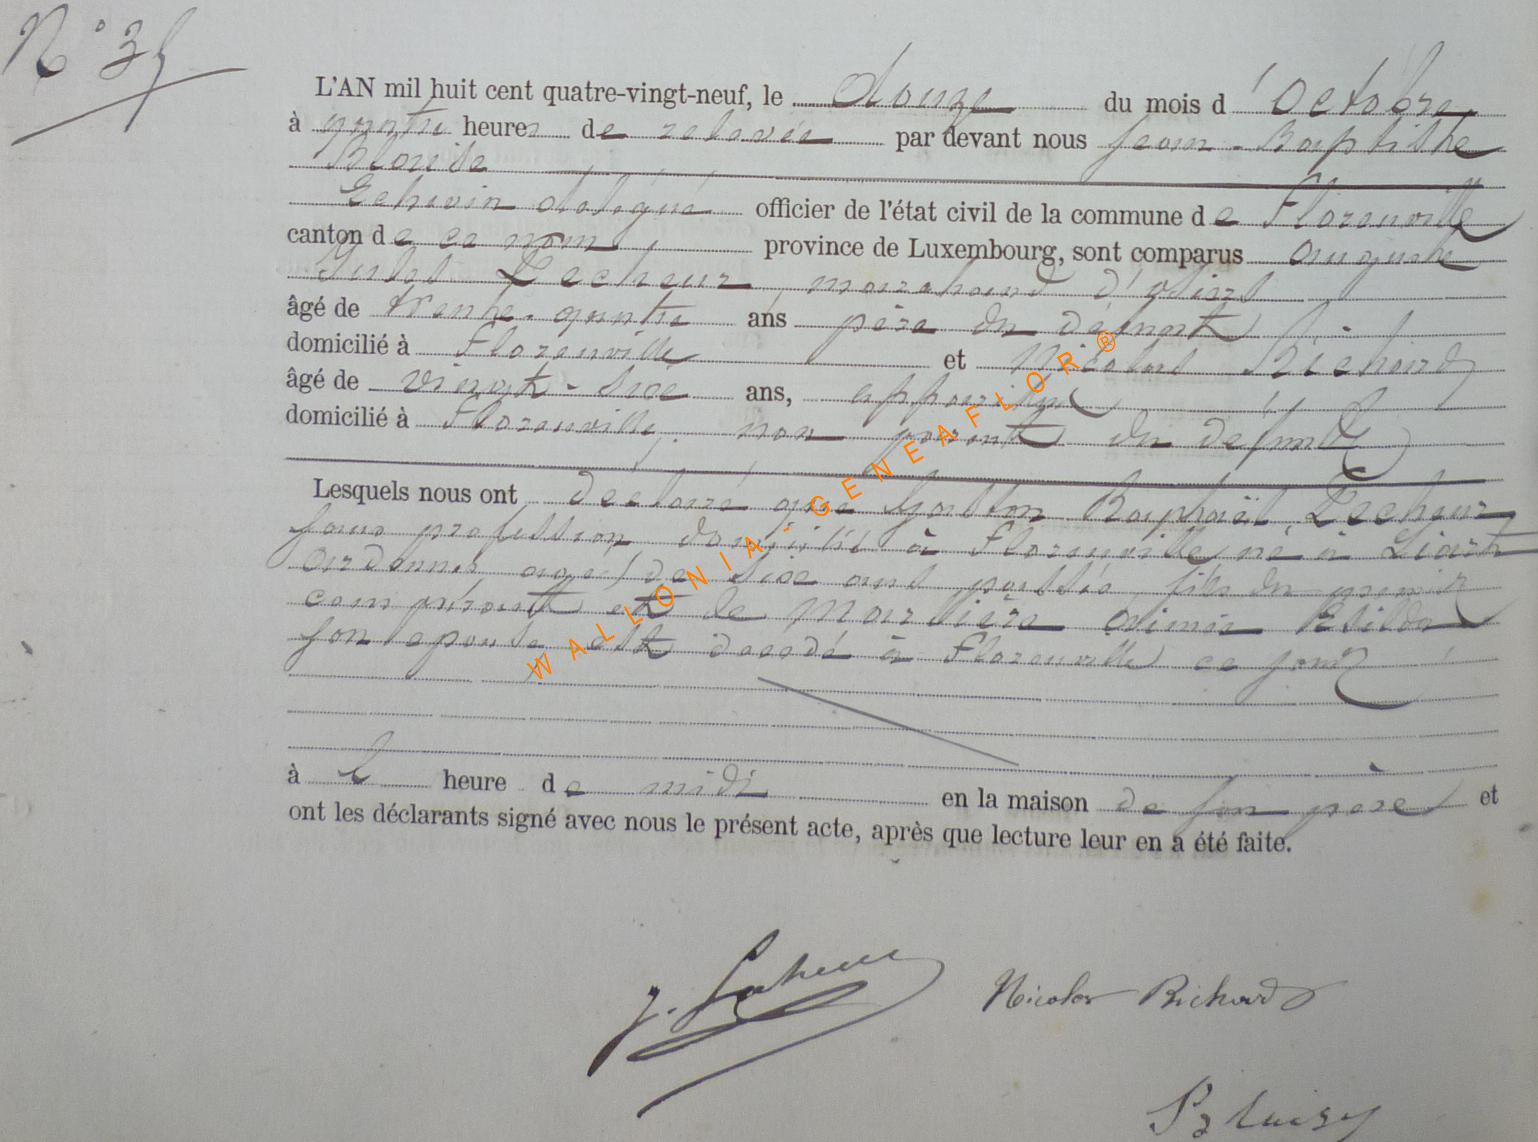 N° 35
L'AN mil huit cent quatre-vingt-neuf, le douze du mois d'Octobre
à quatre heures de relevée par devant nous Jean-Baptiste
Blaise
Echevin délégué officier de l'état civil de la commune de Florenville
canton de ce nom, province de Luxembourg, sont comparus Auguste
Jules Lecheur, marchand d'
âgé de trente-quatre ans père du défunt
domicilié à Florenville et Nicolas Richard
âgé de vingt-six ans,
domicilié à Florenville, non parent du défunt
Lesquels nous ont déclaré que Gaston Raphaël Lecheur
sans profession domicilié à Florenville né à Liart
ardennes agé de six ans passés, fils du premier
comparant et de Marlière
son épouse est décédé à Florenville ce jour
à heure de midi en la maison de son père et
ont les déclarants signé avec nous le présent acte, après que lecture leur en a été faite.
J. Nicolas Richard
WALLONIA.GENEAFLOR®